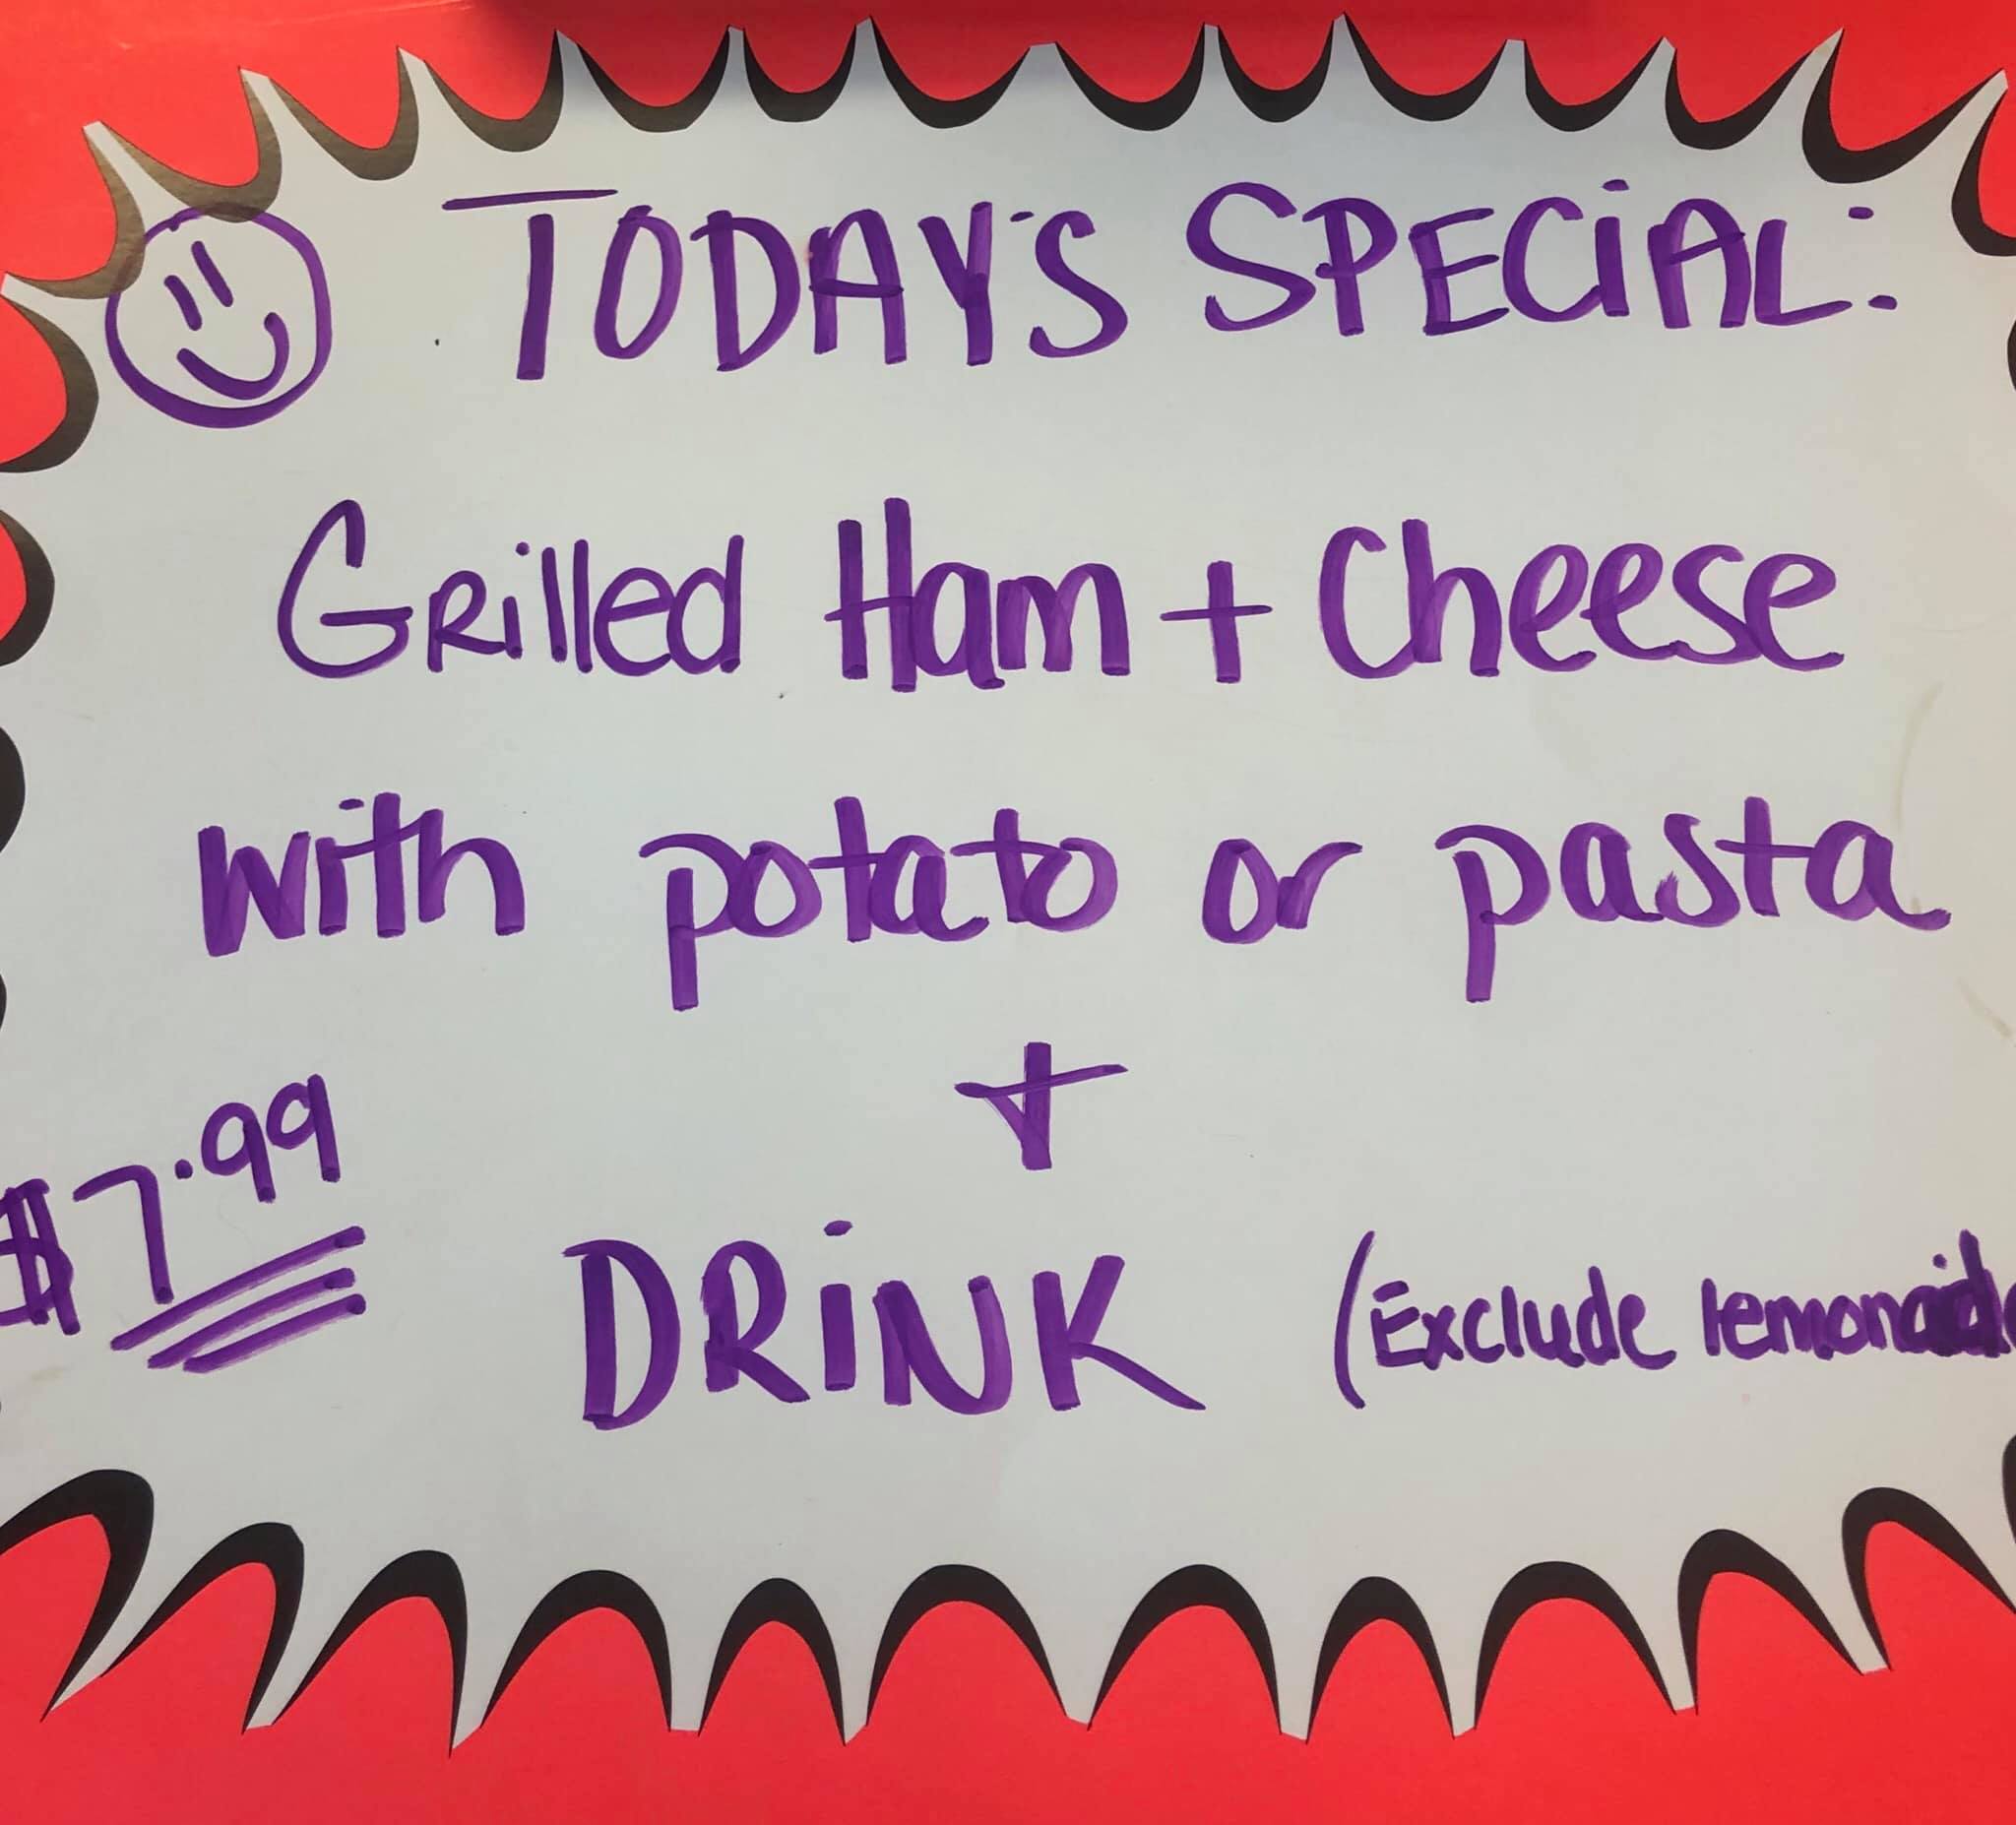 TODAY'S SPECiAL:
GRilled Ham + Cheese
with potato or pasta
+
$7.99
DRiNK (Exclude